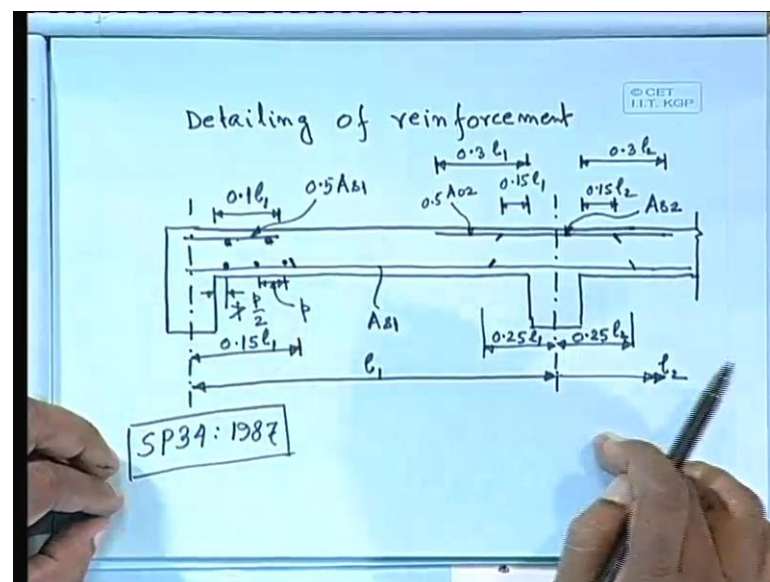 © CET
I.I.T. KGP
Detailing of reinforcement
0.3 l₁
0.3 l₂
0.1l₁
0.5 As1
0.5 As2
0.15l₁
0.15l₂
As2
p/2
p
As1
0.15l₁
0.25l₁
0.25l₂
l₁
l₂
SP34: 1987